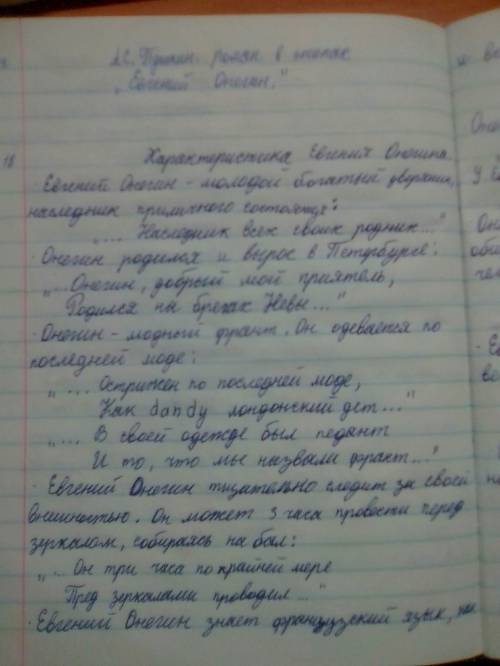 А.С. Пушкин роман в стихах
"Евгений Онегин."
18
Характеристика Евгения Онегина.
· Евгений Онегин - молодой богатый дворянин,
наследник приличного состояния:
"... Наследник всех своих родних..."
· Онегин родился и вырос в Петербурге:
"...Онегин, добрый мой приятель,
Родился на брегах Невы..."
· Онегин - модный франт. Он одевается по
последней моде:
"... Острижен по последней моде,
Как dandy лондонский дет..."
"... В своей одежде был педант
И то, что мы назвали франт..."
· Евгений Онегин тщательно следит за своей
внешностью. Он может 3 часа провости перед
зеркалом, собираясь на бал:
"... Он три часа по крайней мере
Пред зеркалами проводил..."
· Евгений Онегин знает французский язык,